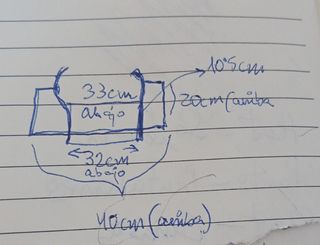 10'5cm
33cm
abajo
20cm (arriba
32cm
abajo
40cm (arriba)